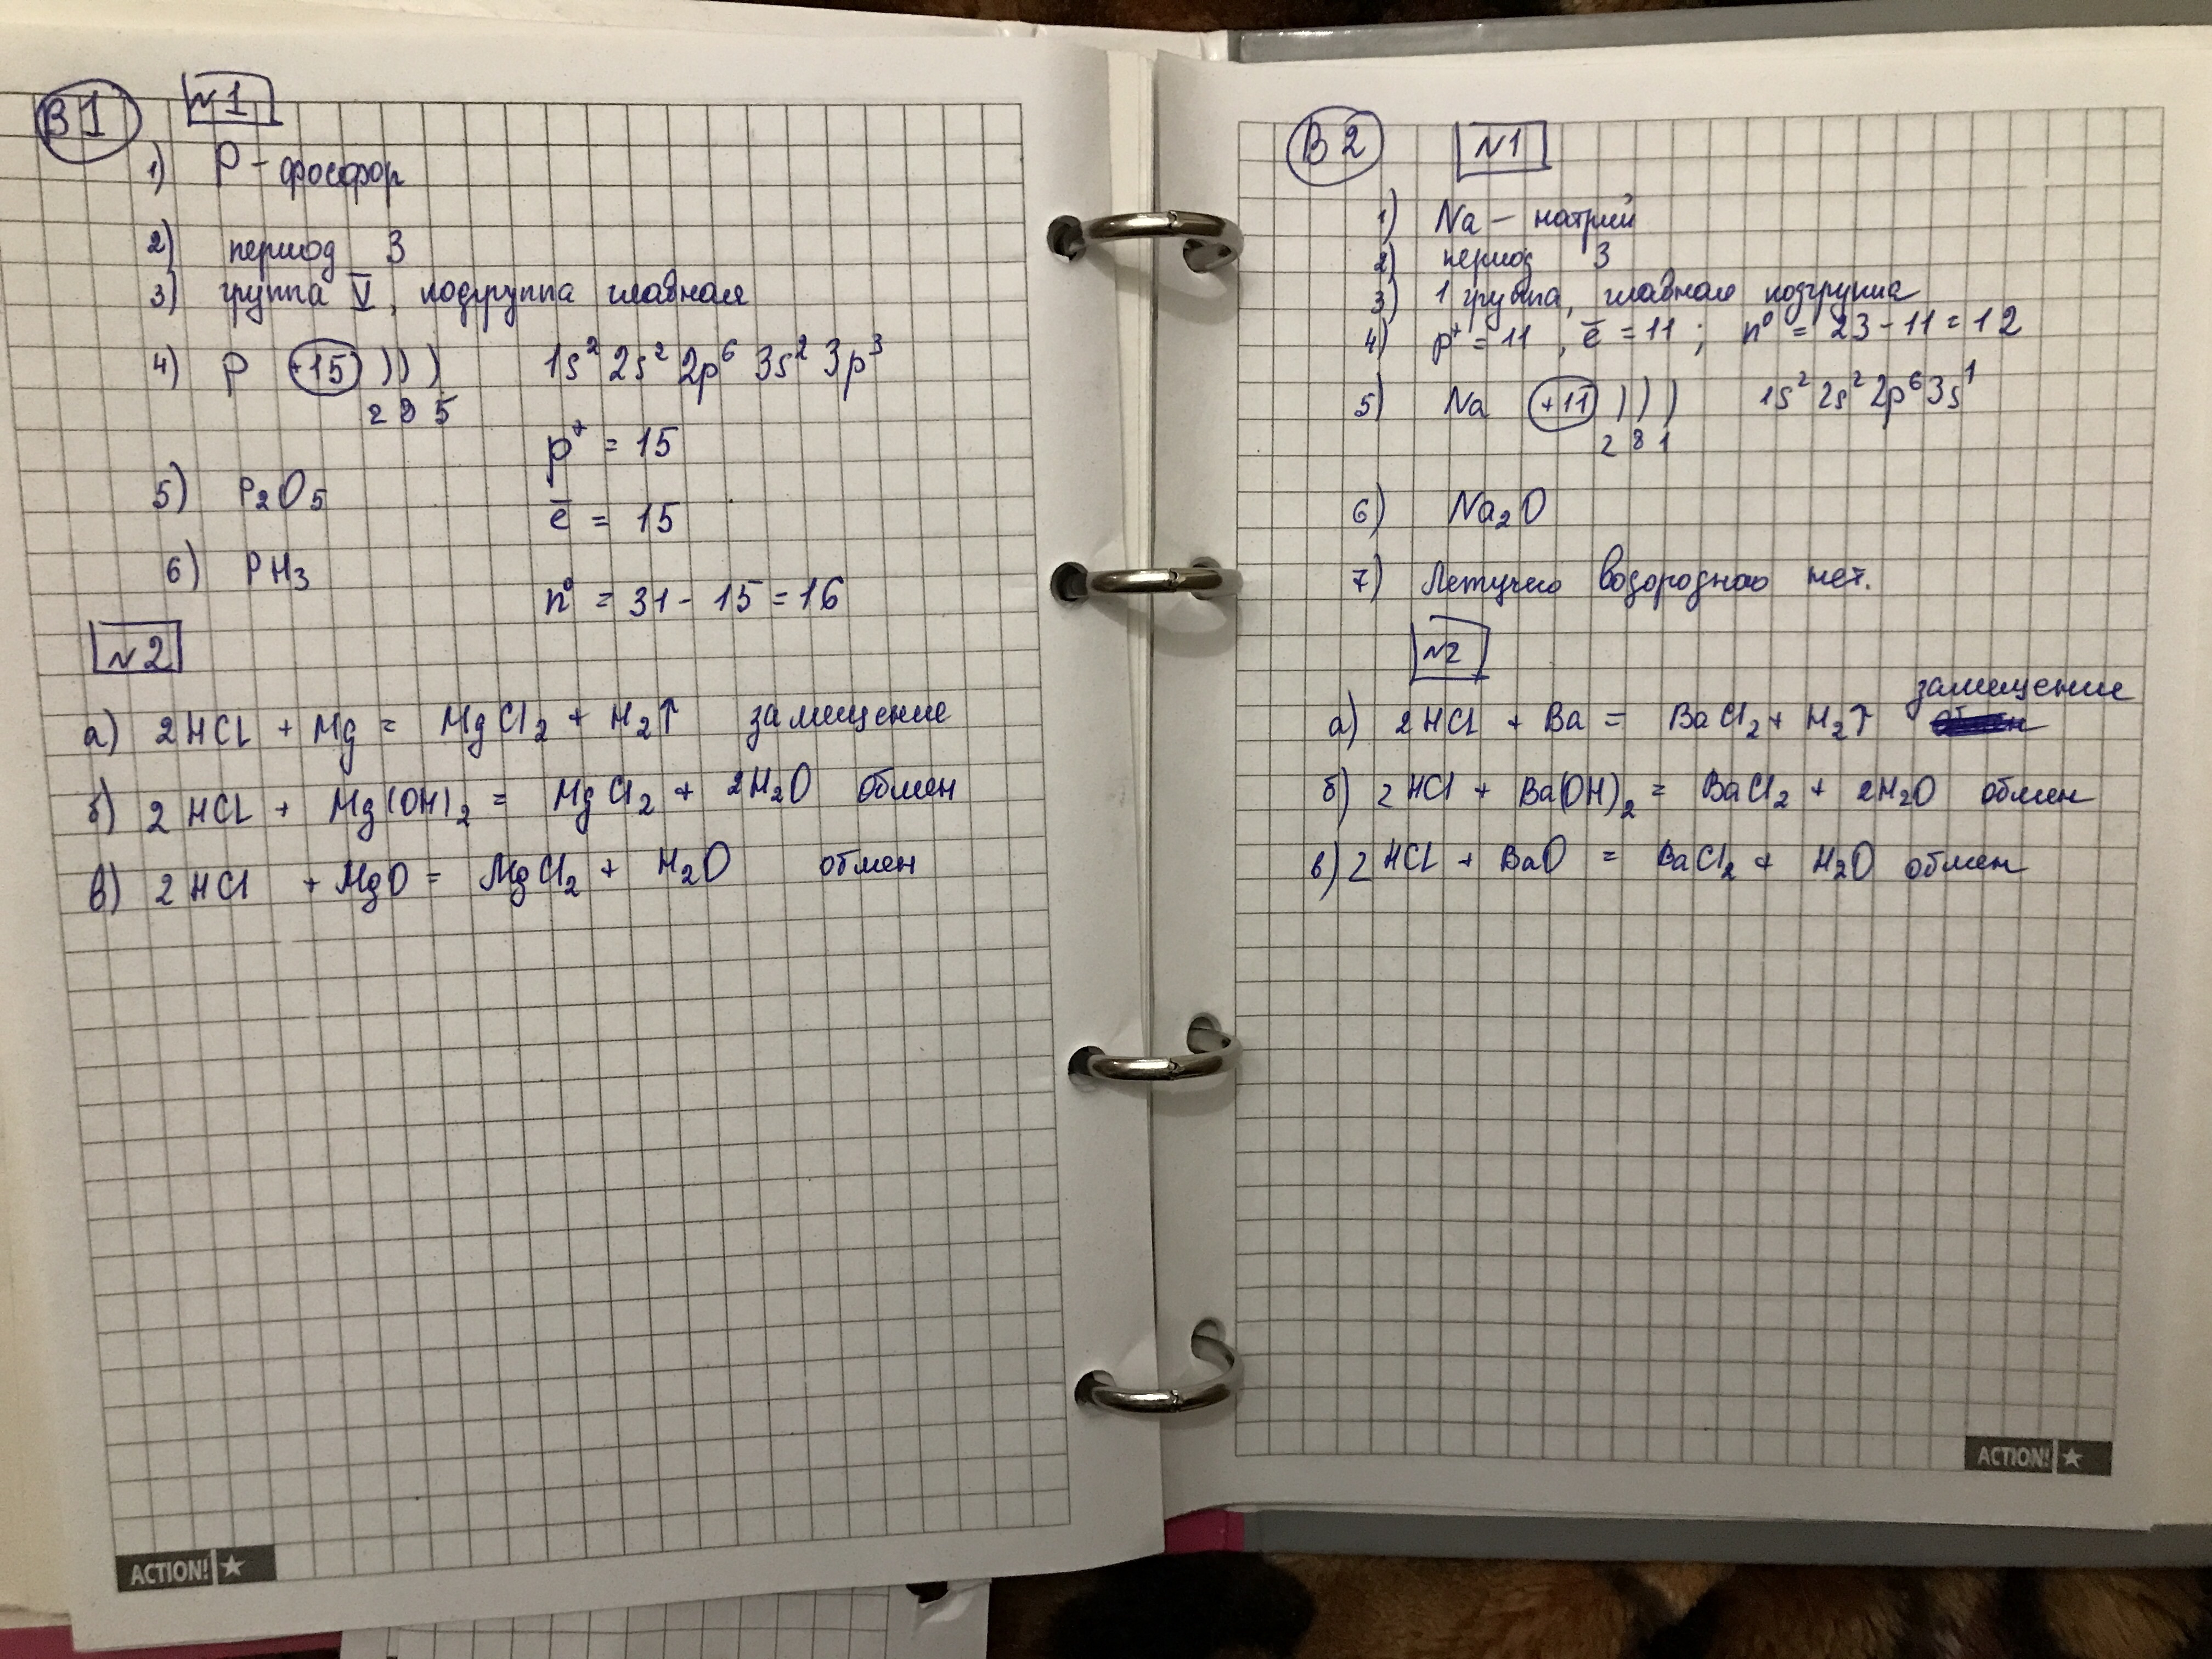 В1 №1
1) P - фосфор
2) период 3
3) группа V, подгруппа главная
4) P +15 ) ) ) 1s² 2s² 2p⁶ 3s² 3p³
2 8 5
p⁺ = 15
5) P₂O₅
e̅ = 15
6) PH₃
n⁰ = 31 - 15 = 16
№2
а) 2HCl + Mg = MgCl₂ + H₂↑ замещение
б) 2HCl + Mg(OH)₂ = MgCl₂ + 2H₂O обмен
в) 2HCl + MgO = MgCl₂ + H₂O обмен
ACTION!
В2 №1
1) Na - натрий
2) период 3
3) 1 группа, главная подгруппа
4) p⁺ = 11, e̅ = 11; n⁰ = 23 - 11 = 12
5) Na +11 ) ) ) 1s² 2s² 2p⁶ 3s¹
2 8 1
6) Na₂O
7) Летучего водородного нет.
№2
замещение
а) 2HCl + Ba = BaCl₂ + H₂↑
б) 2HCl + Ba(OH)₂ = BaCl₂ + 2H₂O обмен
в) 2HCl + BaO = BaCl₂ + H₂O обмен
ACTION!